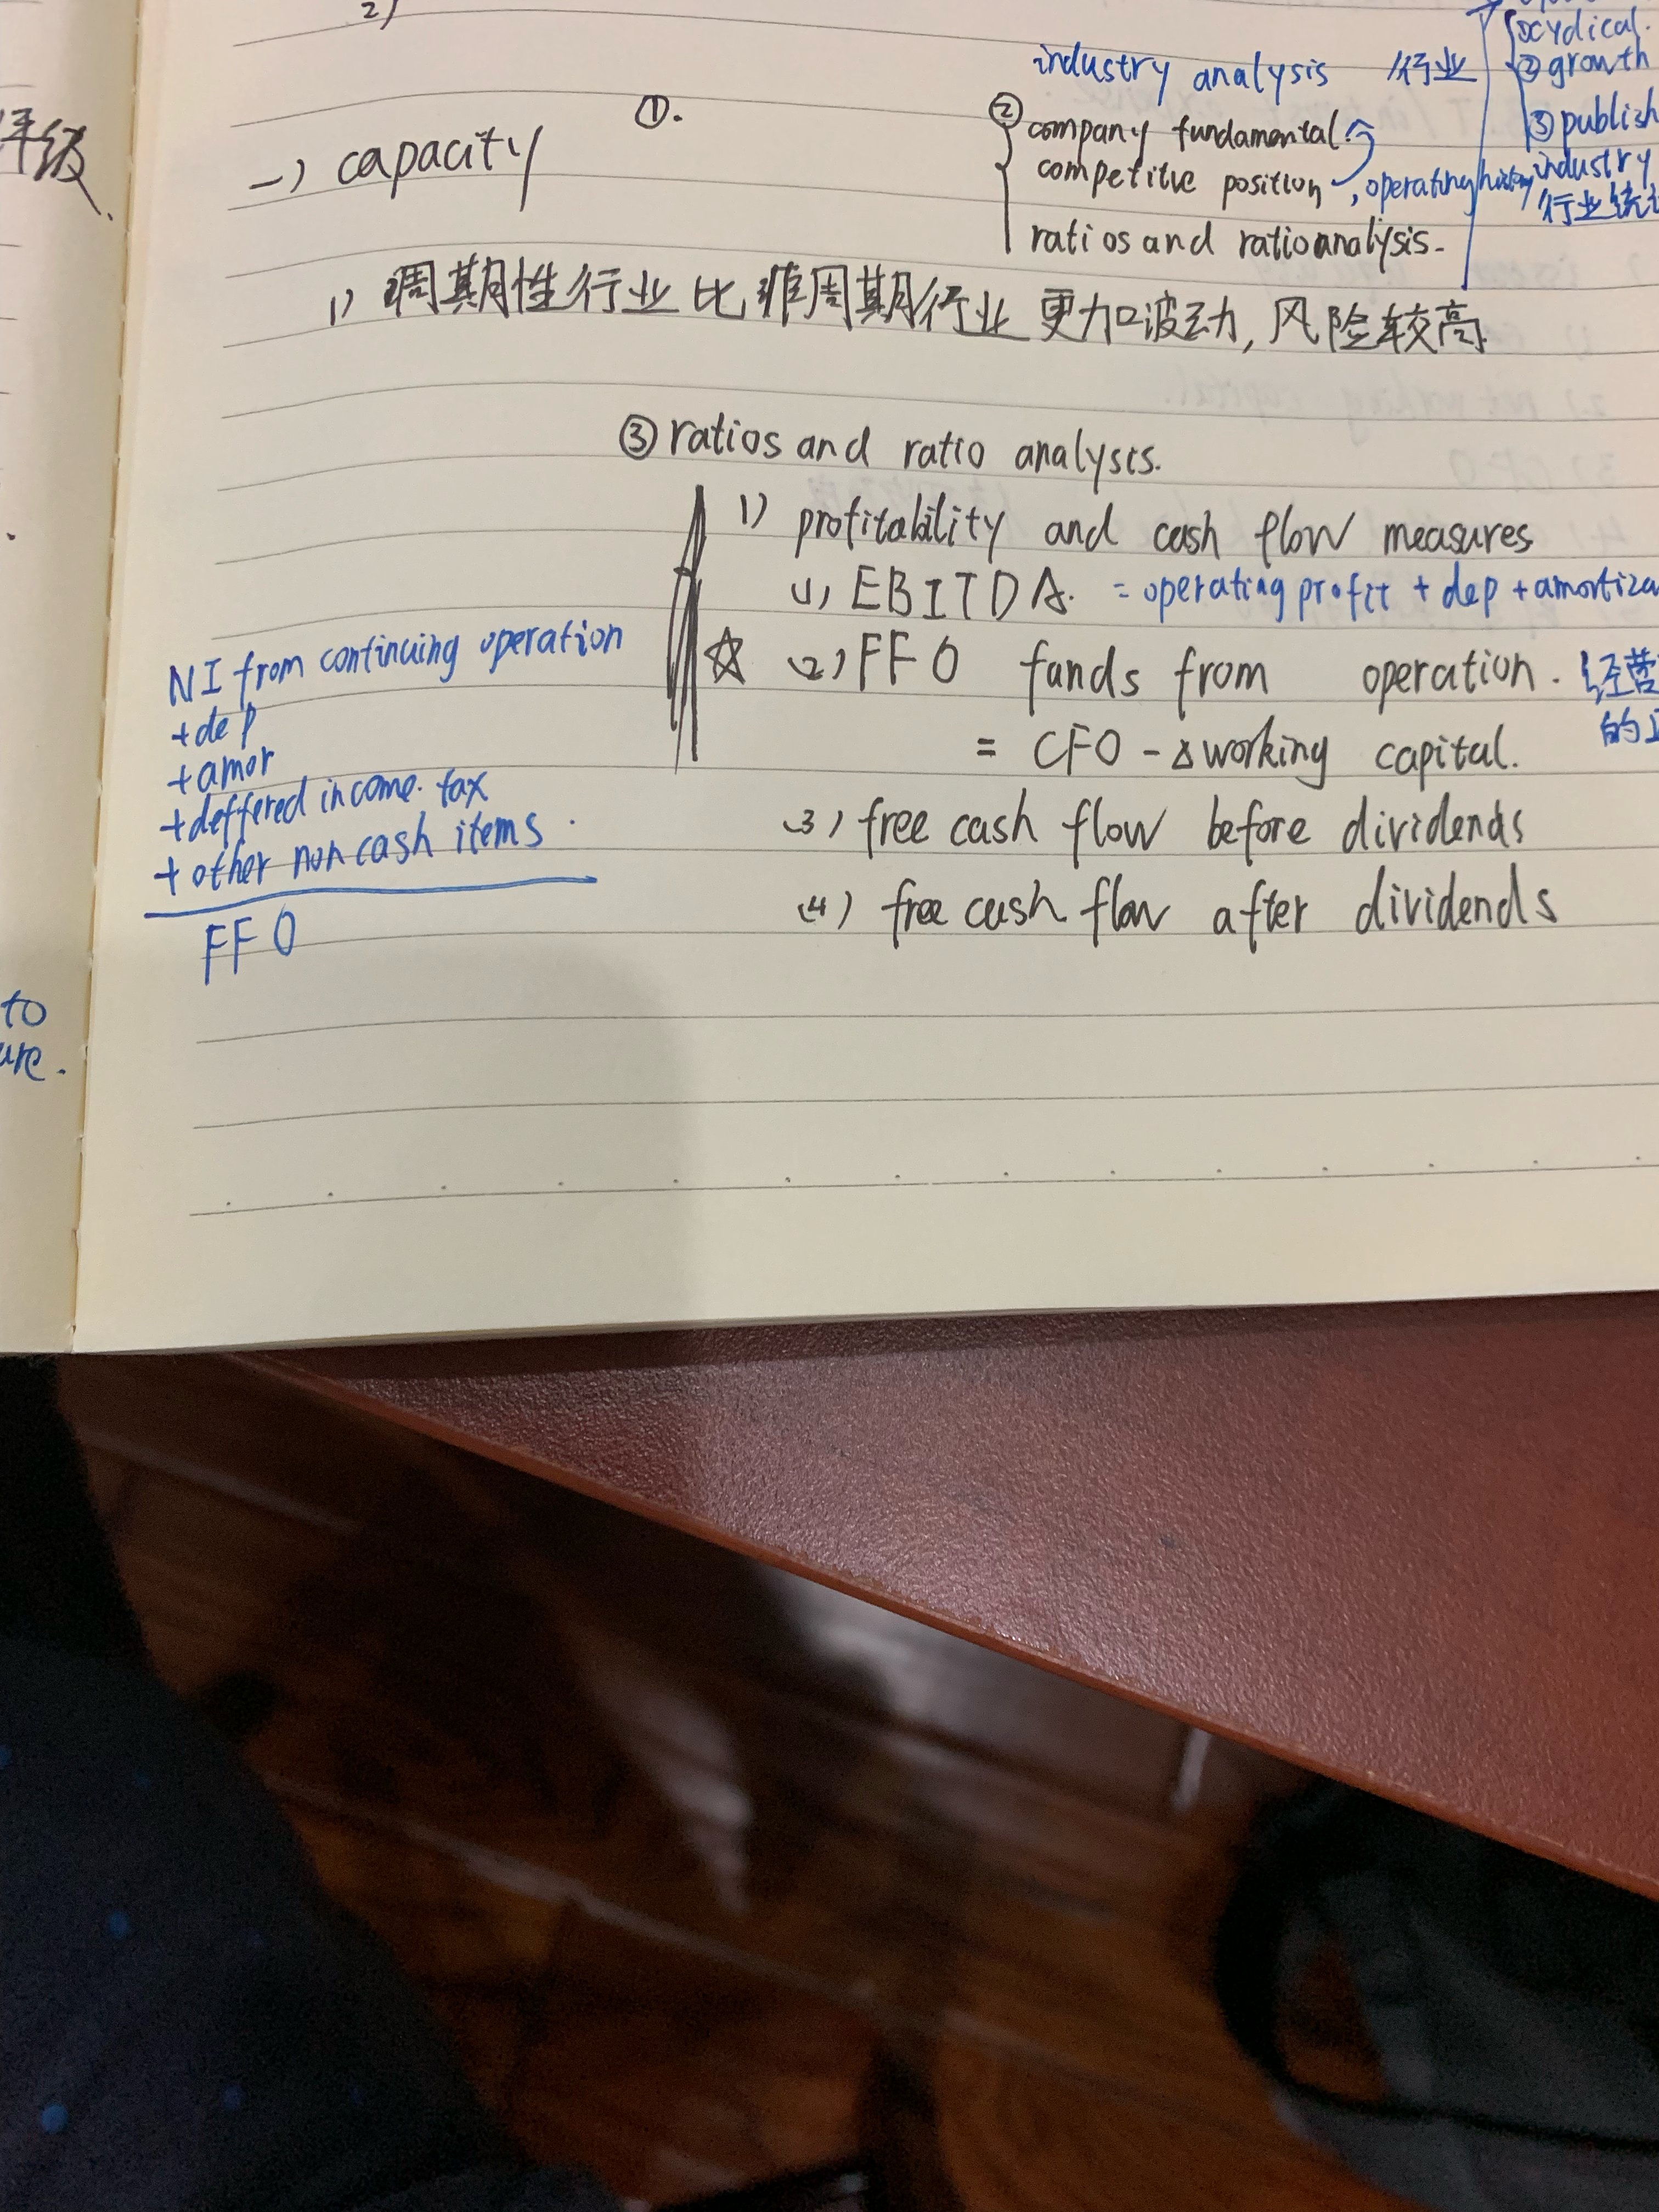 2)
评级
①.
industry analysis 行业
①cydical.
②growth
③publish
industry
②
company fundamental
competitive position , operating history
行业统
一) capacity
ratios and ratio analysis.
1) 周期性行业比非周期行业更加波动, 风险较高
③ ratios and ratio analysis.
1) profitability and cash flow measures
(1) EBITDA. = operating profit + dep + amortiza
☆ (2) FFO funds from operation. 经营
= CFO - Δ working capital. 的
(3) free cash flow before dividends
(4) free cash flow after dividends
NI from continuing operation
+ dep
+ amor
+ deffered income. tax
+ other non cash items.
FFO
to
ure.